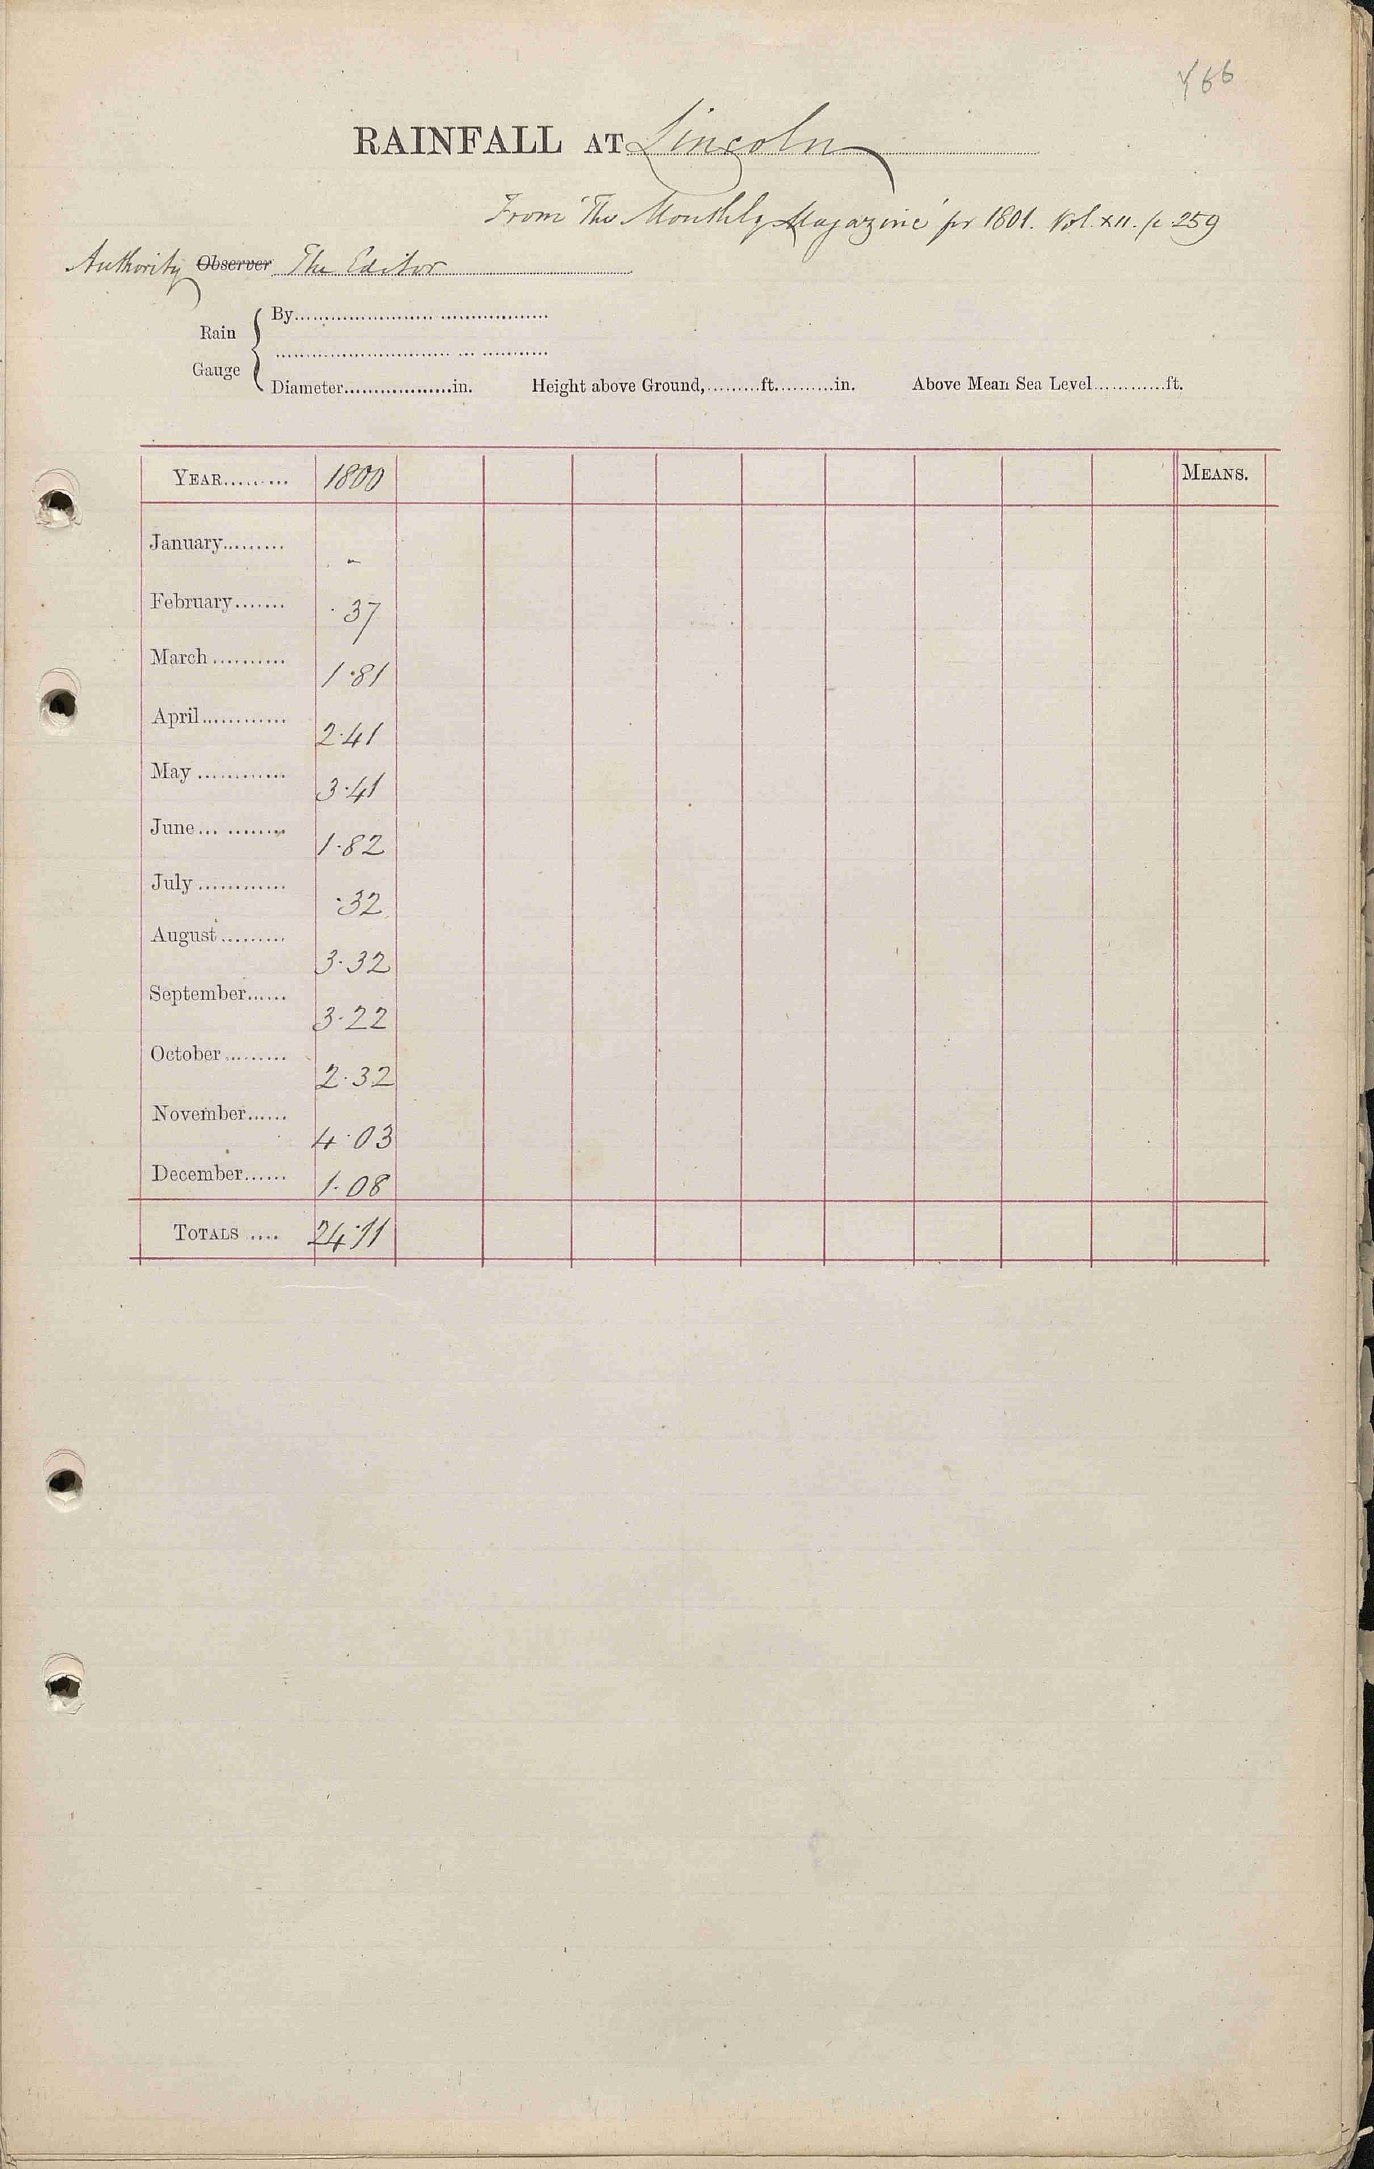 466
RAINFALL AT Lincoln
From 'The Monthly Magazine' for 1801. Vol. XII. p. 259
Authority Observer The Editor
Rain Gauge
By
Diameter in. Height above Ground, ft. in. Above Mean Sea Level ft.
YEAR 1800 MEANS.
January -
February .37
March 1.81
April 2.41
May 3.41
June 1.82
July .32
August 3.32
September 3.22
October 2.32
November 4.03
December 1.08
TOTALS 24.11